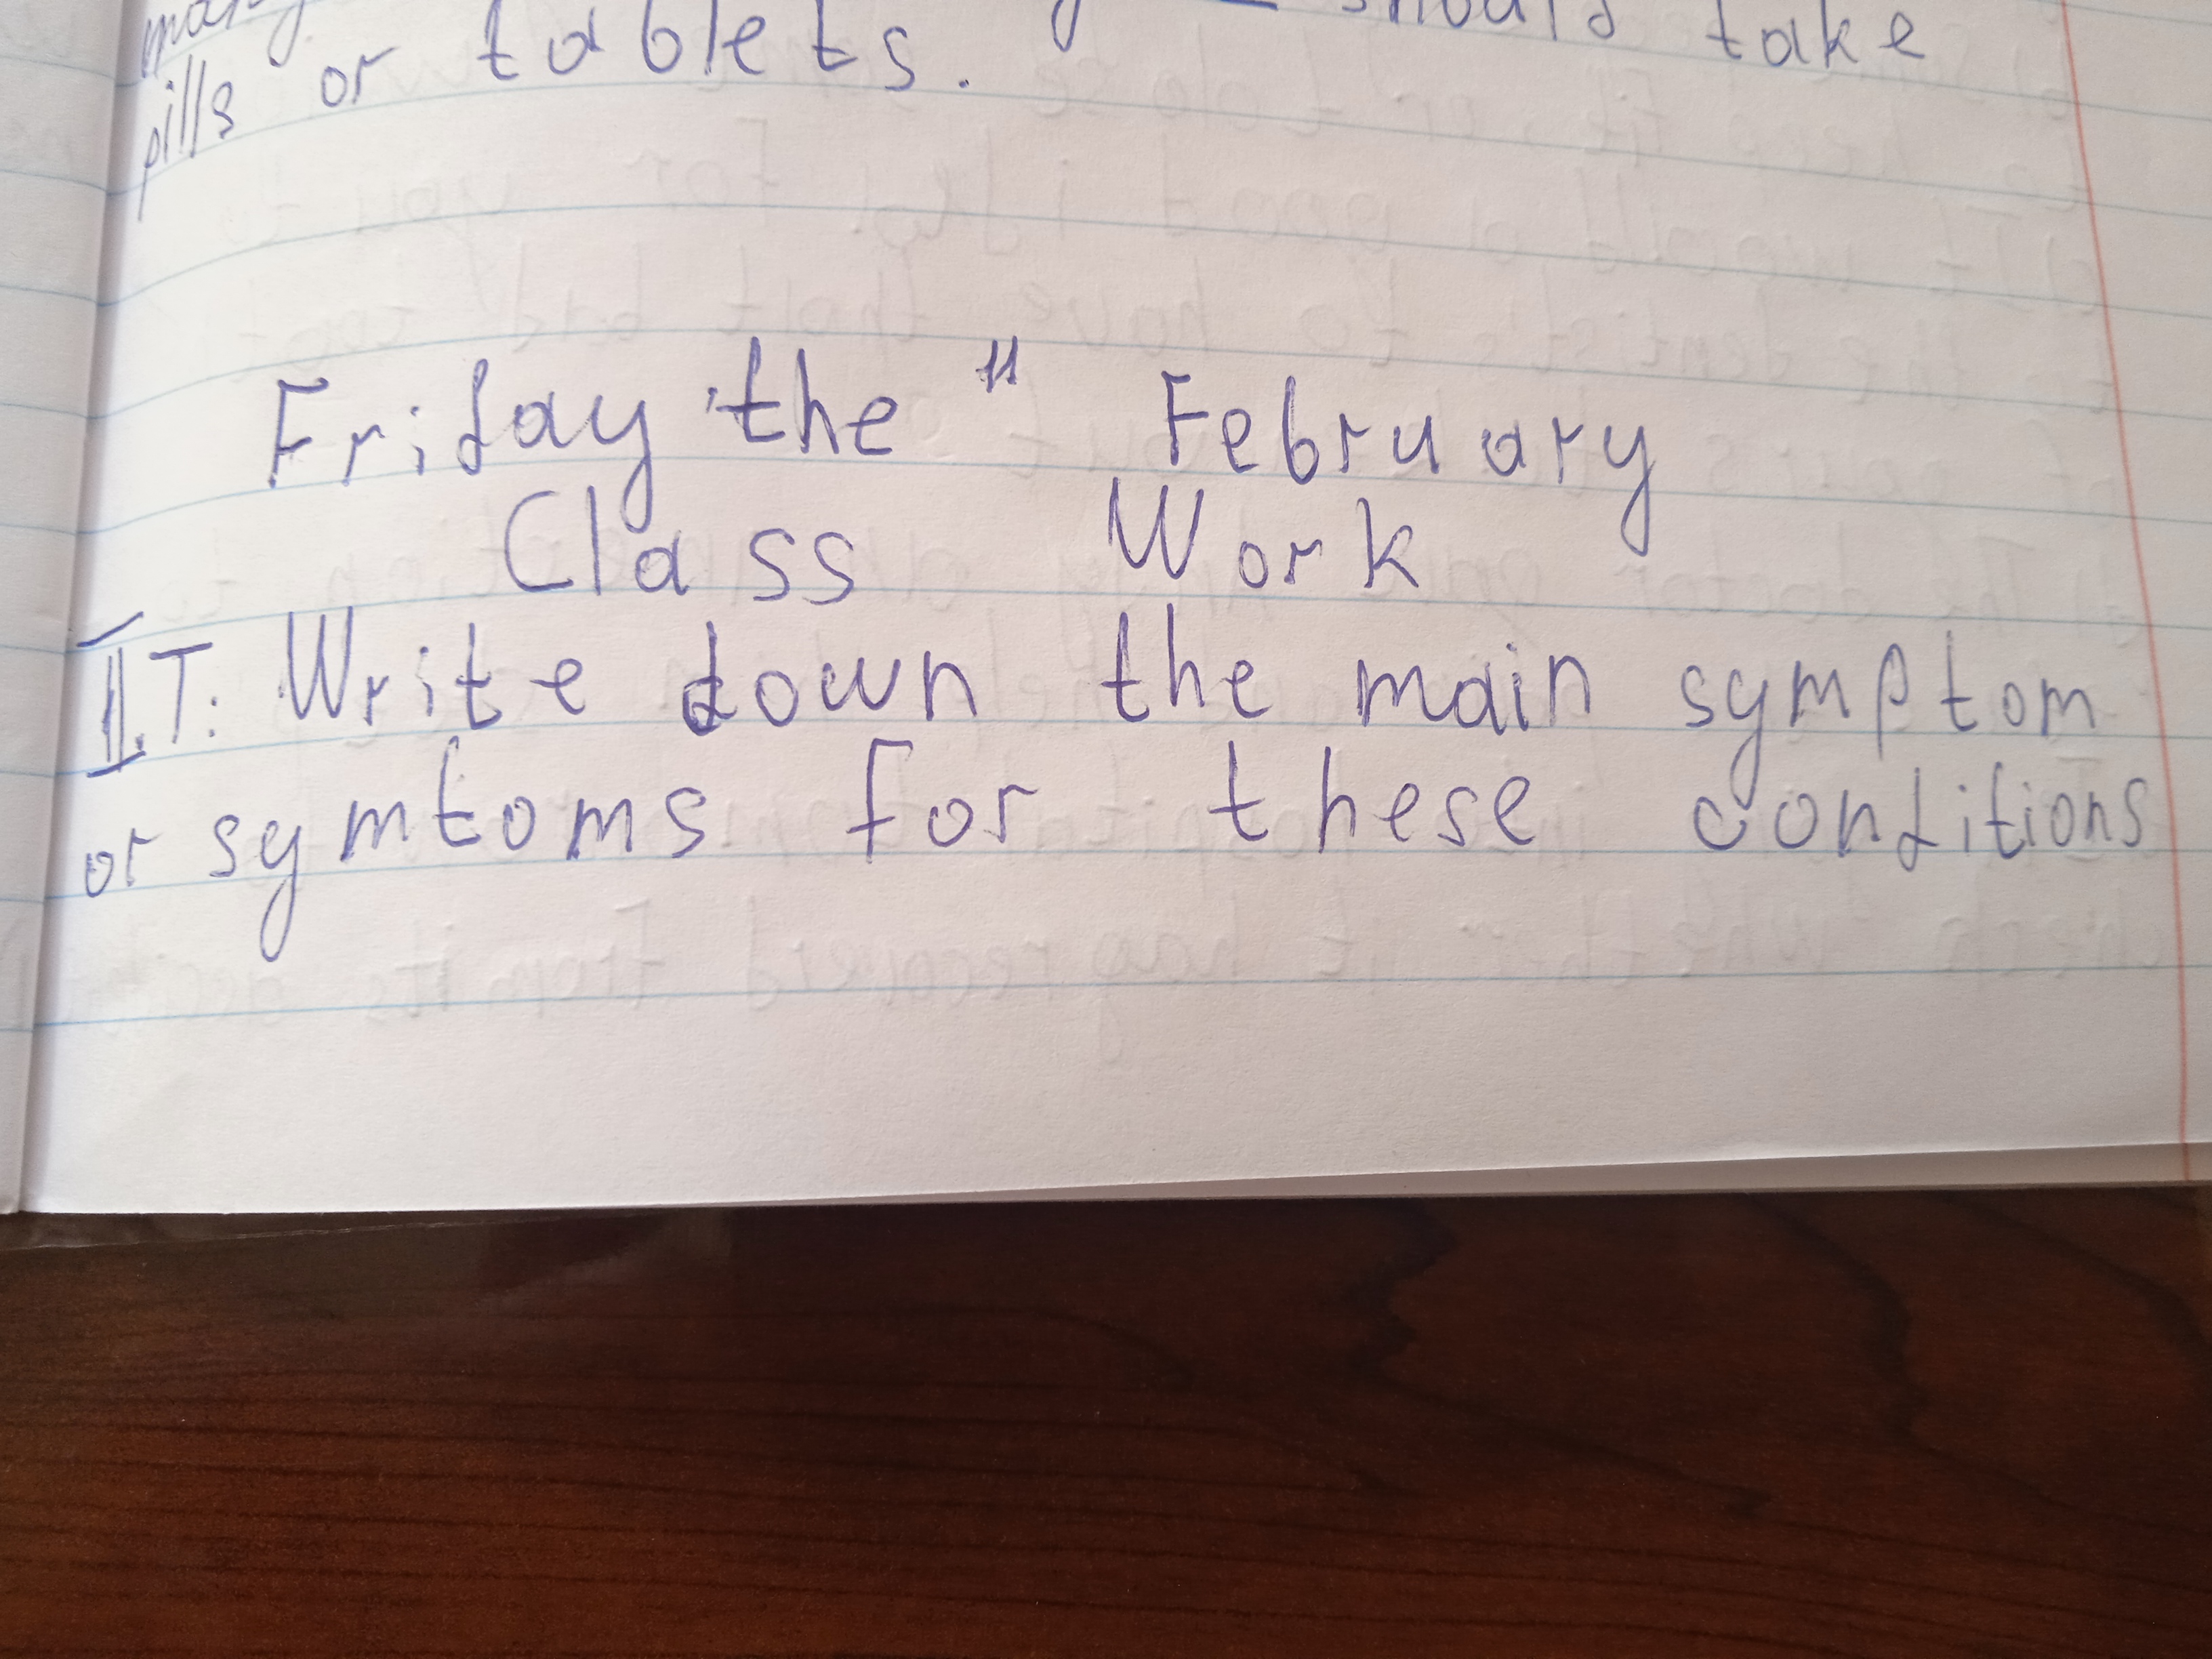 many should take
pills or tablets.
Friday the 11 February
Class Work
II.T: Write down the main symptom
or symtoms for these conditions